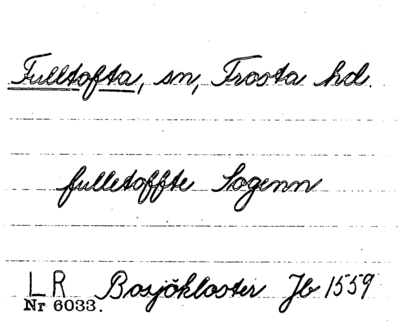 Fulltofta, sn, Frosta hd.
fulletoffte Sogenn
LR Bosjökloster Jb 1559
Nr 6033.